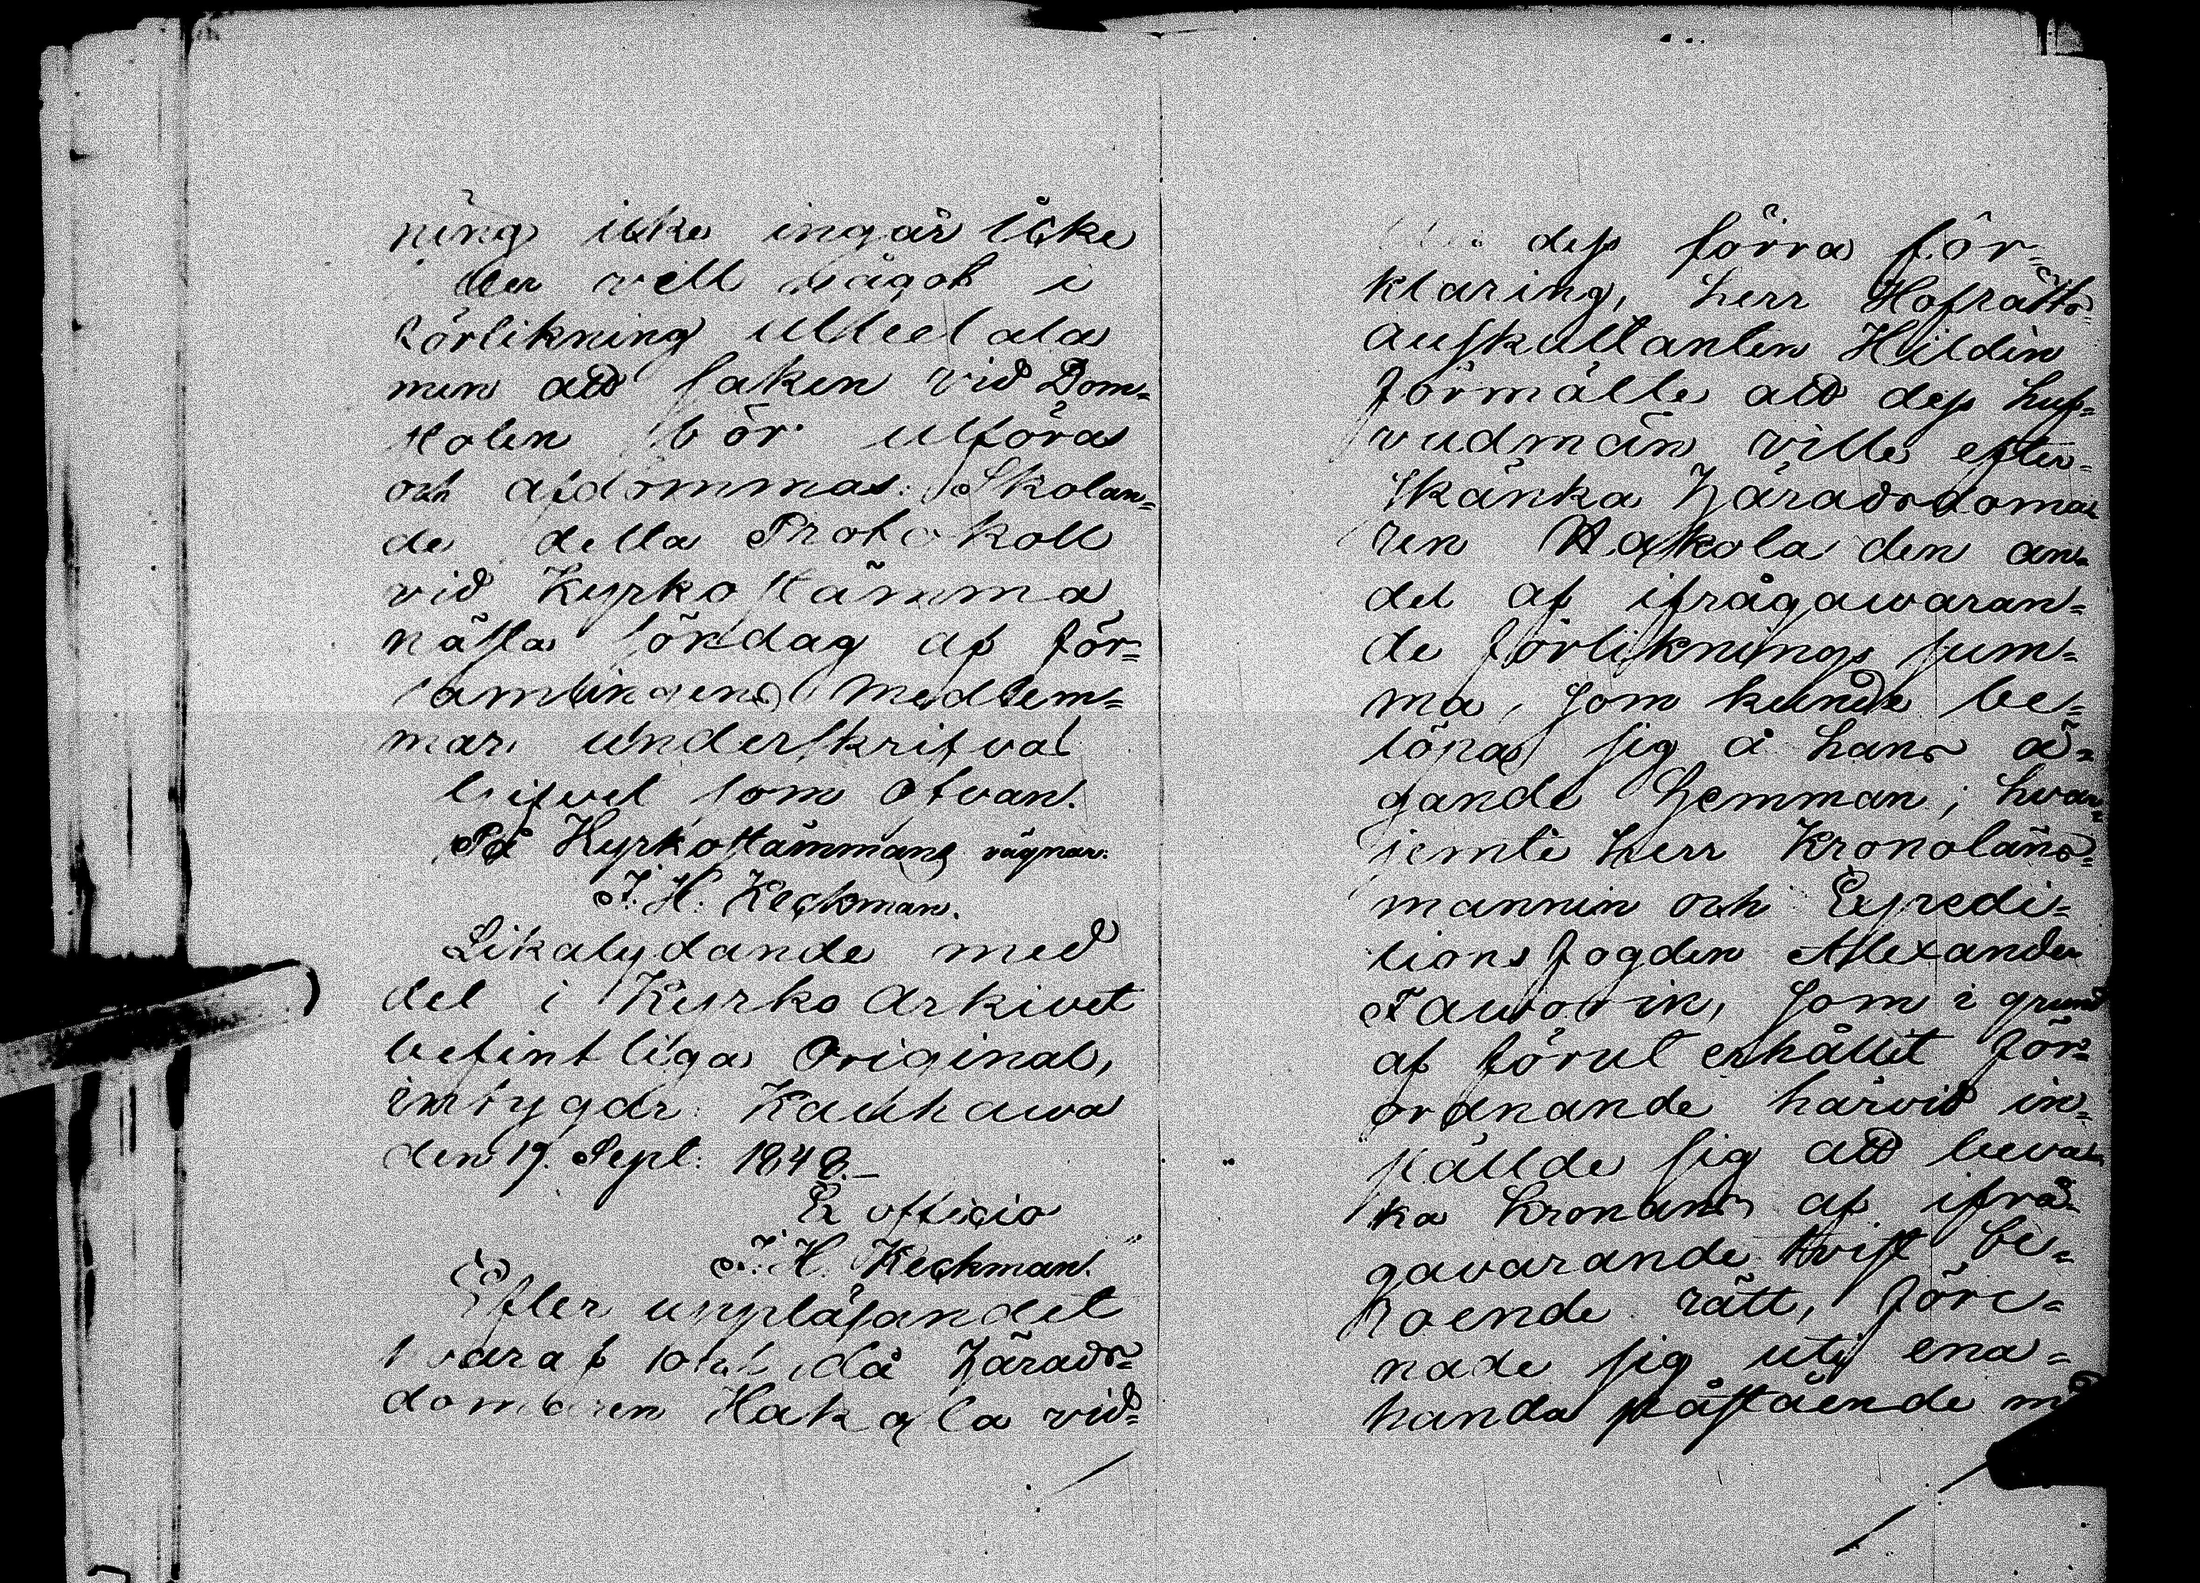 ning icke ingår icke
eller vill något i
förlikning uttal ala
men att saken vid Dom¬
stolen bör utföras
och afdömmas. Skolan¬
de detta Protokoll
vid Kyrkostämma
nästa söndag af för¬
samlingens medlem¬
mar underskrifvas
som ofvan.
På Kyrkostämmans vägnar.
J. H. Keckman.
Likalydande med
det i Kyrko Arkivet
befintliga Original,
intygar Kauhawa
den 19. Sept. 1848.—
Ex officio
J. H. Keckman.
Efter uppläsandet
hvaraf och då Härads¬
domaren Hakola vid¬
dess förra för¬
klaring, herr Hofrätts¬
auskultanten Hildén
förmälte att dess huf¬
vudmän ville efter¬
skänka Häradsdoma¬
ren Hakola den an¬
del af ifrågawaran¬
de förliknings sum¬
ma, som kunde be¬
löpa sig å hans ä¬
gande hemman; hvar¬
jemte herr Kronoläns¬
mannen och Expedi¬
tions fogden Alexander
Favorin, som i grund
af förut erhållit för¬
ordnande härvid in¬
ställde sig att beva¬
ka kronans af ifrå¬
gavarande tvist be¬
roende rätt, före¬
nade sig uti ena¬
handa påstående